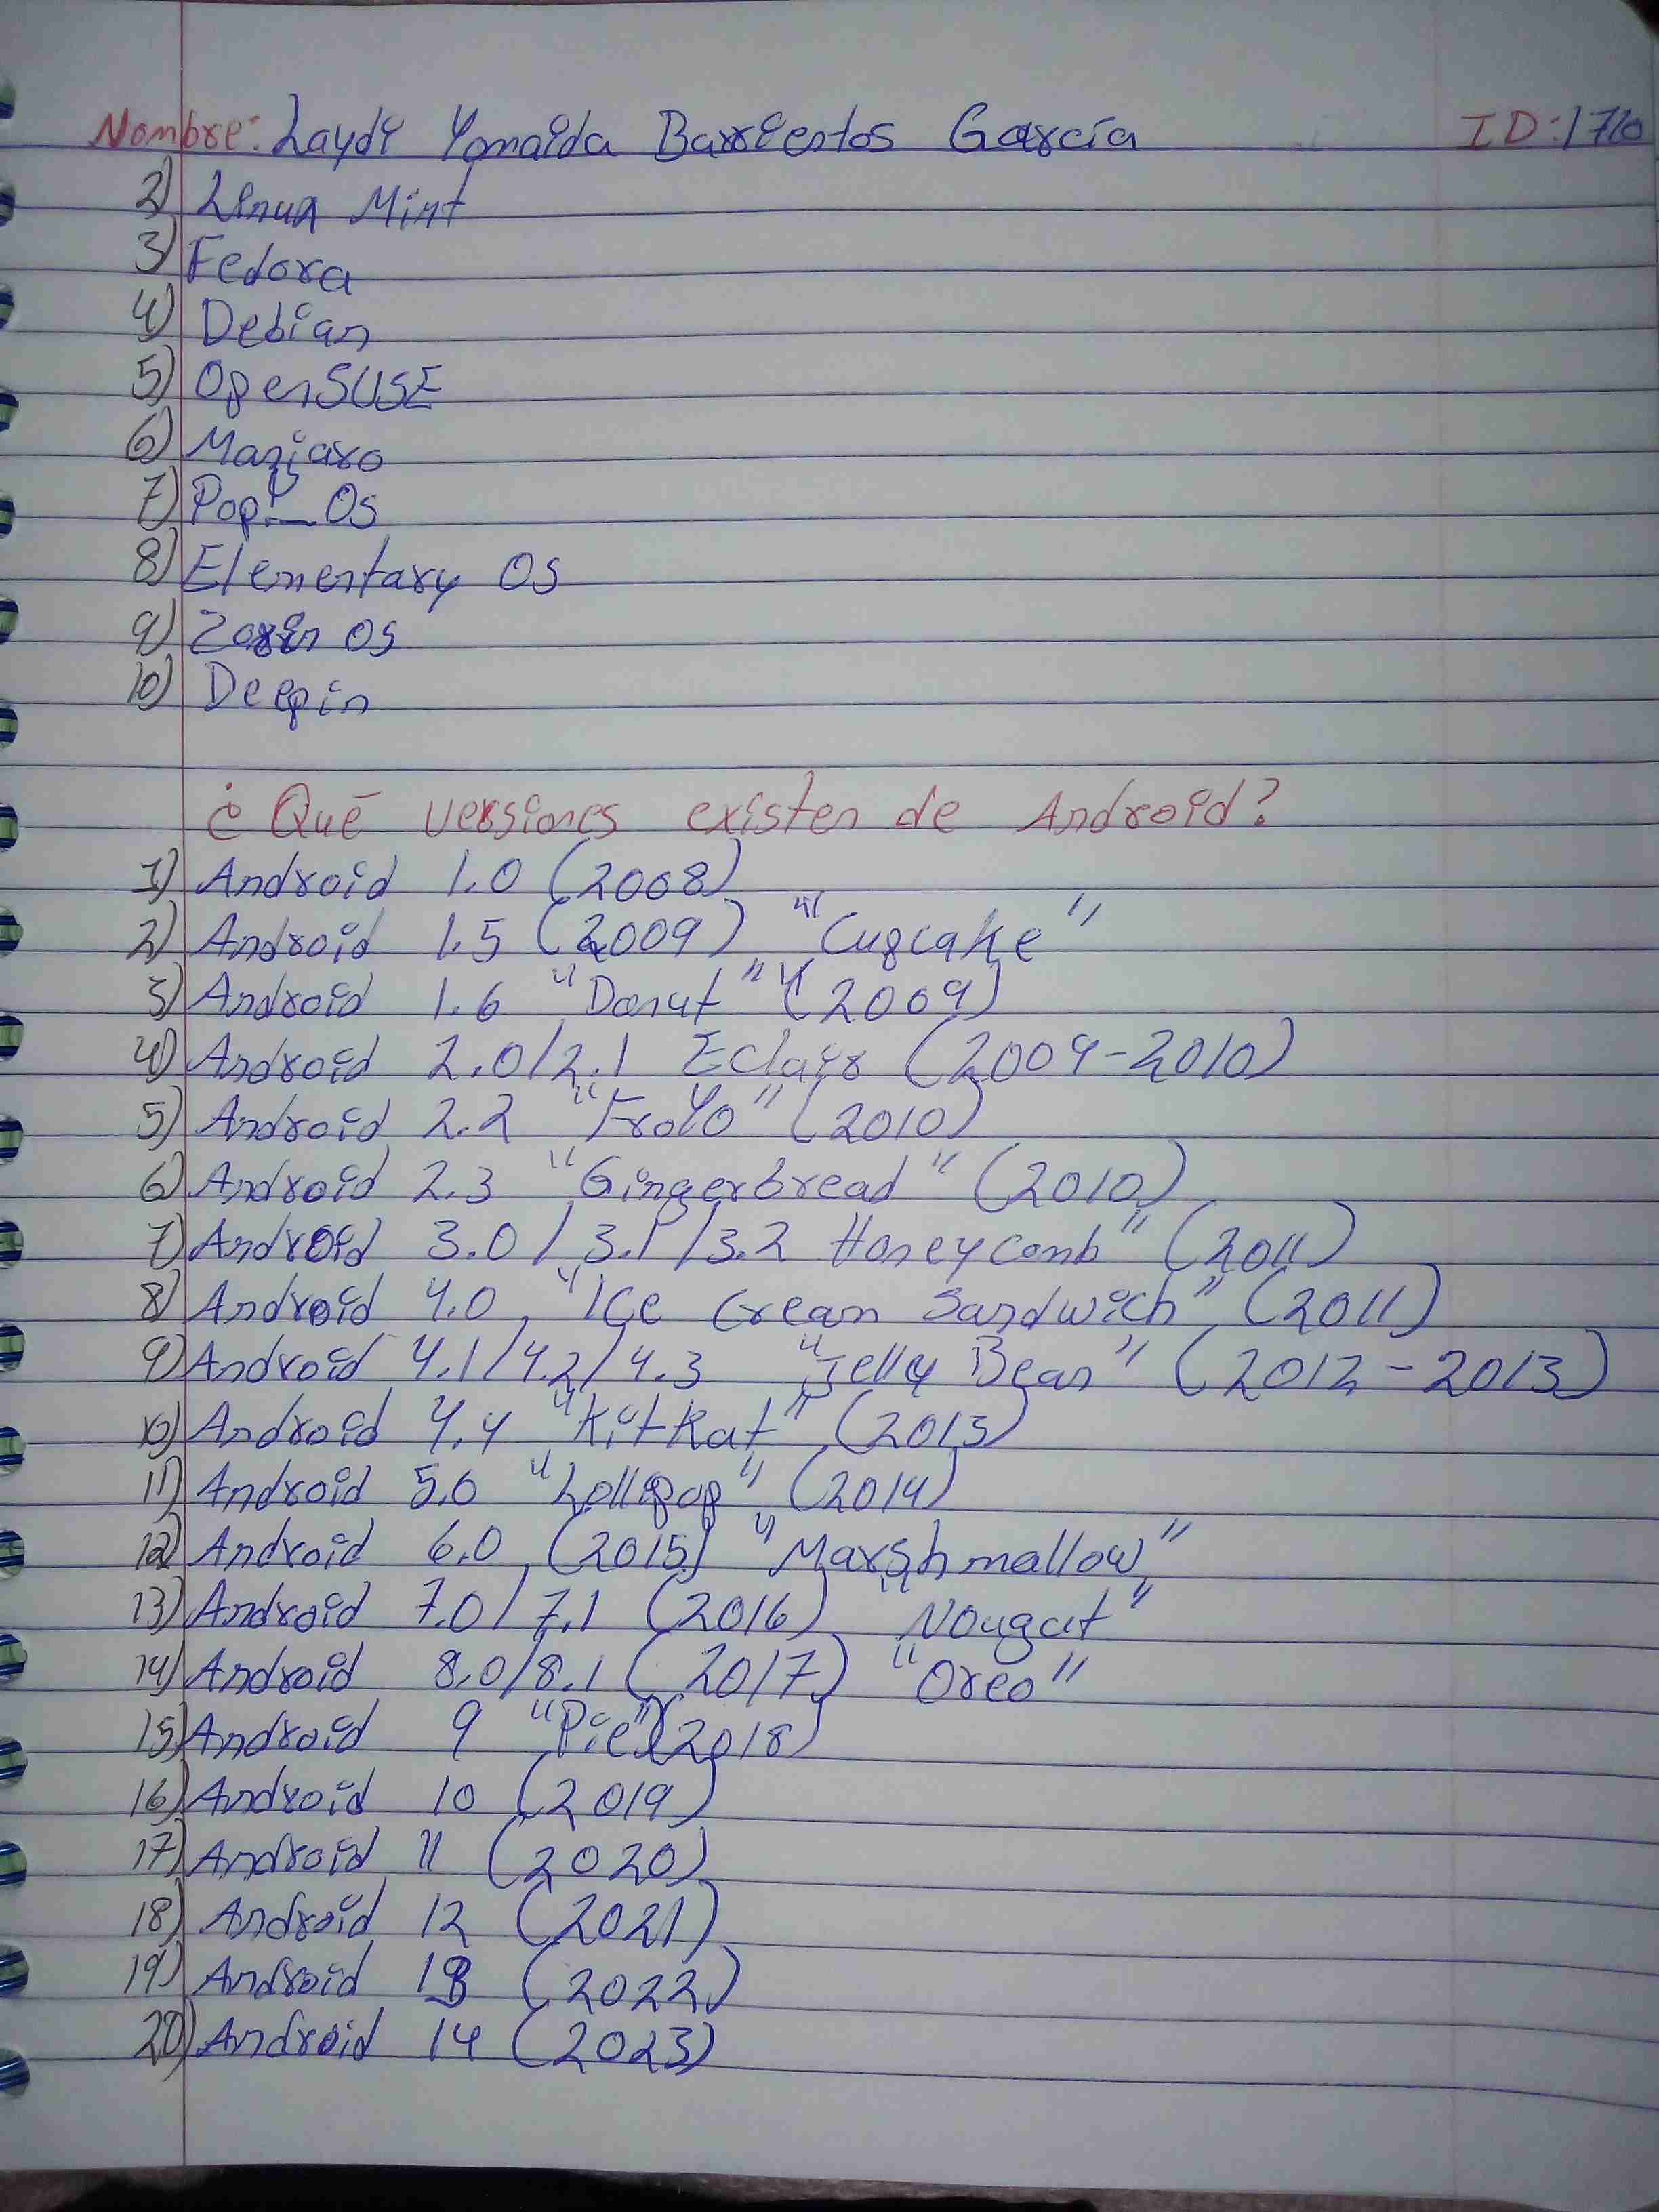 Nombre: Laydi Yomaida Barrientos García ID: 1710
2) Linux Mint
3) Fedora
4) Debian
5) OpenSUSE
6) Manjaro
7) Pop!_Os
8) Elementary OS
9) Zorin OS
10) Deepin
¿Qué versiones existen de Android?
1) Android 1.0 (2008)
2) Android 1.5 (2009) "Cupcake"
3) Android 1.6 "Donut" (2009)
4) Android 2.0/2.1 Eclair (2009-2010)
5) Android 2.2 "FroYo" (2010)
6) Android 2.3 "Gingerbread" (2010)
7) Android 3.0/3.1/3.2 Honeycomb" (2011)
8) Android 4.0 "Ice Cream Sandwich" (2011)
9) Android 4.1/4.2/4.3 "Jelly Bean" (2012-2013)
10) Android 4.4 "KitKat" (2013)
11) Android 5.0 "Lollipop" (2014)
12) Android 6.0 (2015) "Marshmallow"
13) Android 7.0/7.1 (2016) "Nougat"
14) Android 8.0/8.1 (2017) "Oreo"
15) Android 9 "Pie" (2018)
16) Android 10 (2019)
17) Android 11 (2020)
18) Android 12 (2021)
19) Android 13 (2022)
20) Android 14 (2023)